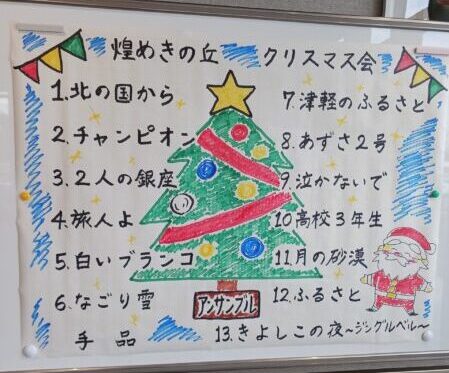 煌めきの丘 クリスマス会
1.北の国から
2.チャンピオン
3.2人の銀座
4.旅人よ
5.白いブランコ
6.なごり雪
手品
7.津軽のふるさと
8.あずさ2号
9.泣かないで
10高校3年生
11.月の砂漠
12.ふるさと
13.きよしこの夜~ジングルベル~
アンサンブル